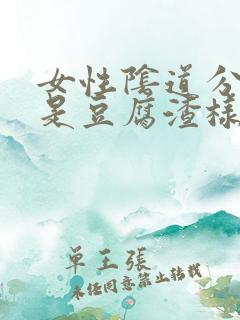 女性陰道分
是豆腐渣樣
單王張
未經同意禁止轉載